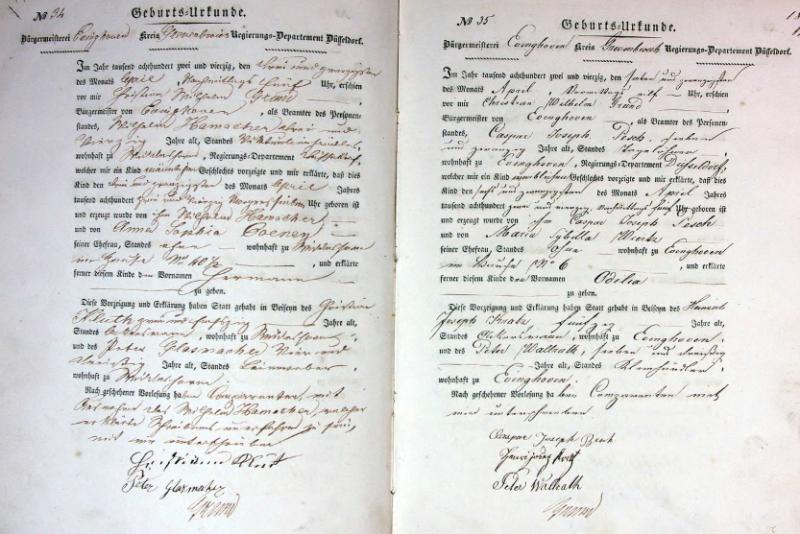 № 34
Geburts-Urkunde.
Bürgermeisterei Evinghoven Kreis Grevenbroich Regierungs-Departement Düsseldorf.
Im Jahr tausend achthundert zwei und vierzig, den drei und zwanzigsten
des Monats April, Nachmittags fünf Uhr, erschien
vor mir Christian Wilhelm Grund
Bürgermeister von Evinghoven, als Beamter des Personen-
standes, Wilhelm Hamacher drei und
vierzig Jahre alt, Standes
wohnhaft zu, Regierungs-Departement Düsseldorf,
welcher mir ein Kind männlichen Geschlechts vorzeigte und mir erklärte, daß dies
Kind den drei und zwanzigsten des Monats April Jahres
tausend achthundert zwei und vierzig Uhr geboren ist
und erzeugt wurde von ihm Wilhelm Hamacher
und von Anna Coenen
seiner Ehefrau, Standes ohne wohnhaft zu
im Hause No, und erklärte
ferner diesem Kinde den Vornamen Hermann
zu geben.
Diese Vorzeigung und Erklärung haben Statt gehabt in Beiseyn des Christian
Kluth Jahre alt,
Standes Ackersmann, wohnhaft zu
und des Peter Glasmacher vier und
dreißig Jahre alt, Standes
wohnhaft zu
Nach geschehener Vorlesung haben Comparenten mit
des Wilhelm Hamacher, welcher
erklärte Schreibens unerfahren zu sein,
mit mir unterschrieben
Peter Glasmacher
Grund
№ 35
Geburts-Urkunde.
Bürgermeisterei Evinghoven Kreis Grevenbroich Regierungs-Departement Düsseldorf.
Im Jahr tausend achthundert zwei und vierzig, den sieben und zwanzigsten
des Monats April, Vormittags elf Uhr, erschien
vor mir Christian Wilhelm Grund
Bürgermeister von Evinghoven, als Beamter des Personen-
standes, Caspar Joseph Pesch, sieben
und zwanzig Jahre alt, Standes Tagelöhner
wohnhaft zu Evinghoven, Regierungs-Departement Düsseldorf,
welcher mir ein Kind weiblichen Geschlechts vorzeigte und mir erklärte, daß dies
Kind den sechs und zwanzigsten des Monats April Jahres
tausend achthundert zwei und vierzig, Nachmittags fünf Uhr geboren ist
und erzeugt wurde von ihm Caspar Joseph Pesch
und von Maria Sybilla
seiner Ehefrau, Standes ohne wohnhaft zu Evinghoven
im Hause No 6, und erklärte
ferner diesem Kinde den Vornamen Odelia
zu geben.
Diese Vorzeigung und Erklärung haben Statt gehabt in Beiseyn des Heinrich
Joseph fünfzig Jahre alt,
Standes Ackersmann, wohnhaft zu Evinghoven
und des Peter Walrath, sieben und dreißig
Jahre alt, Standes
wohnhaft zu Evinghoven.
Nach geschehener Vorlesung haben Comparenten mit
mir unterschrieben.
Caspar Joseph Pesch
Peter Walrath
Grund